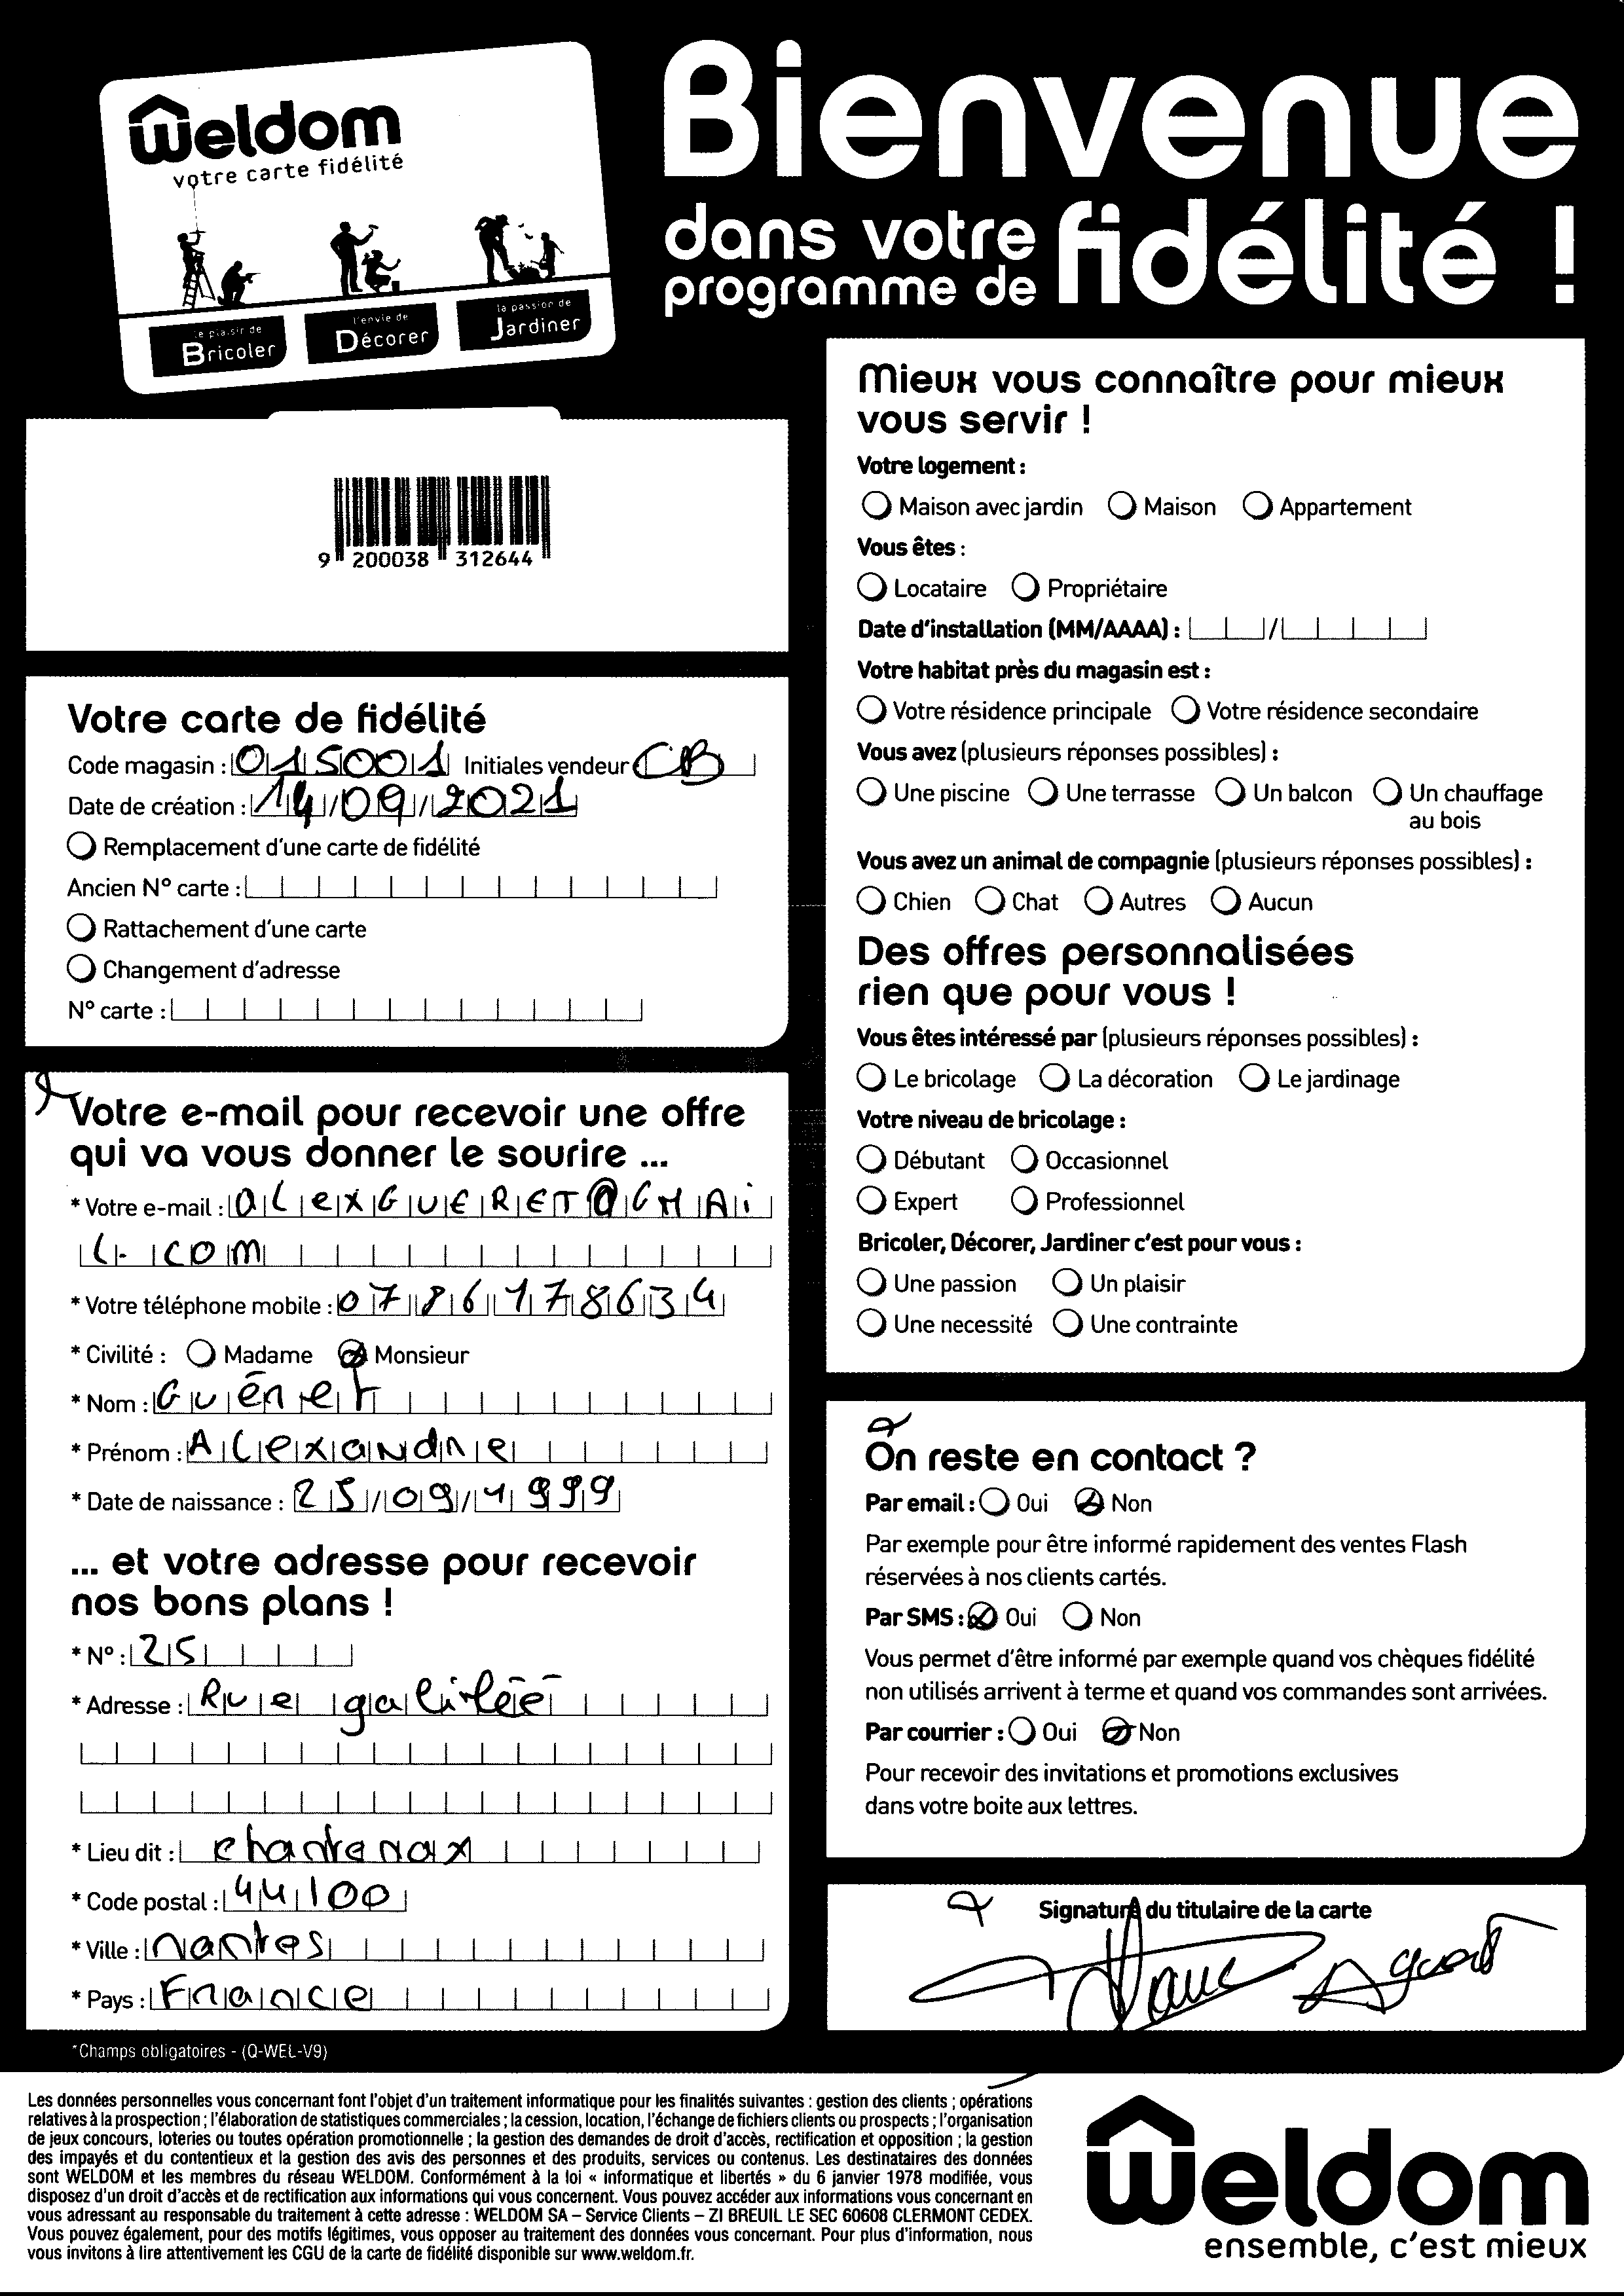 Weldom
votre carte fidélité
le plaisir de
Bricoler
l'envie de
Décorer
la passion de
Jardiner
Bienvenue
dans votre
programme de fidélité !
9 200038 312644
Votre carte de fidélité
Code magasin : 015001 Initiales vendeur CB
Date de création : 14/09/2021
Remplacement d'une carte de fidélité
Ancien N° carte :
Rattachement d'une carte
Changement d'adresse
N° carte :
Votre e-mail pour recevoir une offre
qui va vous donner le sourire ...
* Votre e-mail : alexGUERET@GMAi
l.com
* Votre téléphone mobile : 0786178634
* Civilité : Madame Monsieur
* Nom : Guéret
* Prénom : Alexandre
* Date de naissance : 25/09/1999
... et votre adresse pour recevoir
nos bons plans !
* N° : 25
* Adresse : Rue galilée
* Lieu dit : chantenax
* Code postal : 44100
* Ville : nantes
* Pays : France
*Champs obligatoires - (Q-WEL-V9)
Mieux vous connaître pour mieux
vous servir !
Votre logement :
Maison avec jardin Maison Appartement
Vous êtes :
Locataire Propriétaire
Date d'installation (MM/AAAA) : /
Votre habitat près du magasin est :
Votre résidence principale Votre résidence secondaire
Vous avez (plusieurs réponses possibles) :
Une piscine Une terrasse Un balcon Un chauffage
au bois
Vous avez un animal de compagnie (plusieurs réponses possibles) :
Chien Chat Autres Aucun
Des offres personnalisées
rien que pour vous !
Vous êtes intéressé par (plusieurs réponses possibles) :
Le bricolage La décoration Le jardinage
Votre niveau de bricolage :
Débutant Occasionnel
Expert Professionnel
Bricoler, Décorer, Jardiner c'est pour vous :
Une passion Un plaisir
Une necessité Une contrainte
On reste en contact ?
Par email : Oui Non
Par exemple pour être informé rapidement des ventes Flash
réservées à nos clients cartés.
Par SMS : Oui Non
Vous permet d'être informé par exemple quand vos chèques fidélité
non utilisés arrivent à terme et quand vos commandes sont arrivées.
Par courrier : Oui Non
Pour recevoir des invitations et promotions exclusives
dans votre boite aux lettres.
Signature du titulaire de la carte
Les données personnelles vous concernant font l'objet d'un traitement informatique pour les finalités suivantes : gestion des clients ; opérations
relatives à la prospection ; l'élaboration de statistiques commerciales ; la cession, location, l'échange de fichiers clients ou prospects ; l'organisation
de jeux concours, loteries ou toutes opération promotionnelle ; la gestion des demandes de droit d'accès, rectification et opposition ; la gestion
des impayés et du contentieux et la gestion des avis des personnes et des produits, services ou contenus. Les destinataires des données
sont WELDOM et les membres du réseau WELDOM. Conformément à la loi « informatique et libertés » du 6 janvier 1978 modifiée, vous
disposez d'un droit d'accès et de rectification aux informations qui vous concernent. Vous pouvez accéder aux informations vous concernant en
vous adressant au responsable du traitement à cette adresse : WELDOM SA – Service Clients – ZI BREUIL LE SEC 60608 CLERMONT CEDEX.
Vous pouvez également, pour des motifs légitimes, vous opposer au traitement des données vous concernant. Pour plus d'information, nous
vous invitons à lire attentivement les CGU de la carte de fidélité disponible sur www.weldom.fr.
Weldom
ensemble, c'est mieux